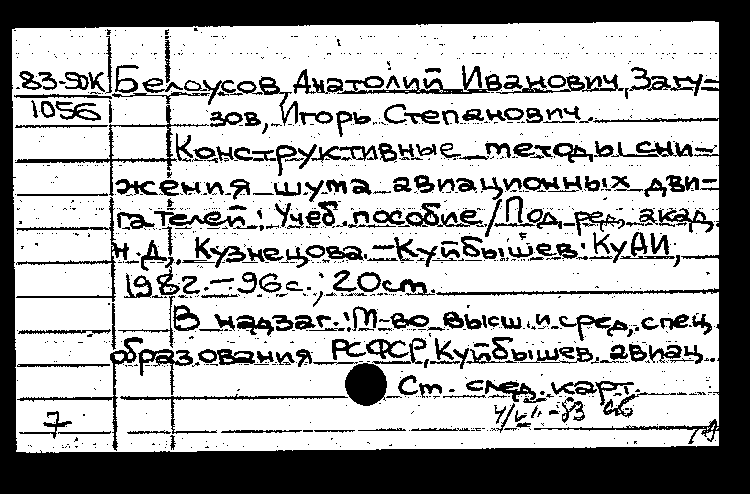 83-50К Белоусов, Анатолий Иванович, Загу-
1056 зов, Игорь Степанович.
Конструктивные методы сни-
жения шума авиационных дви-
гателей: Учеб. пособие / Под ред. акад.
Н.Д. Кузнецова. — Куйбышев: КуАИ,
1982. — 96 с.; 20 см.
В надзаг.: М-во высш. и сред. спец.
образования РСФСР, Куйбышев. авиац.
См. след. карт.
7